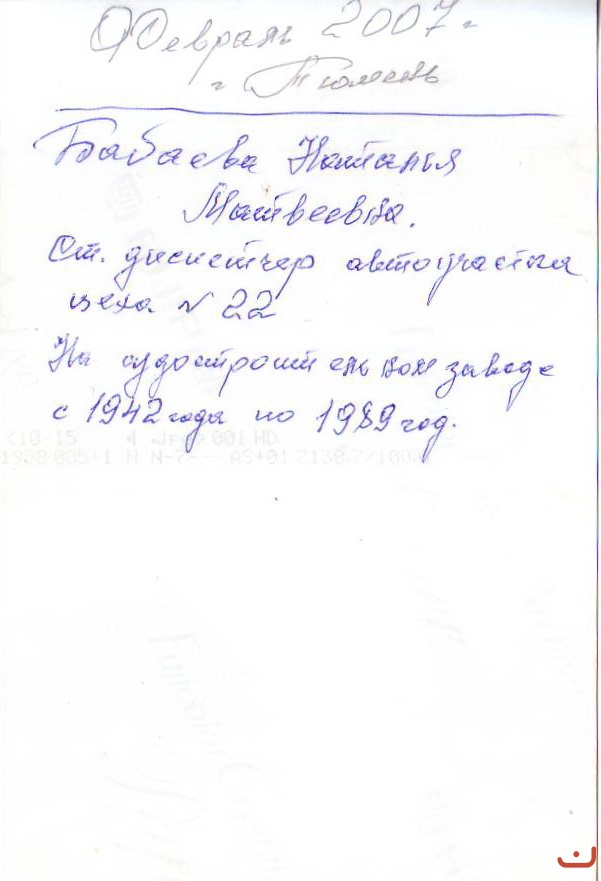 Февраль 2007 г
г Тюмень
Бабаева Наталья
Матвеевна.
Ст. диспетчер автоучастка
цеха № 22
На судостроительном заводе
с 1942 года по 1989 год.
001 HD